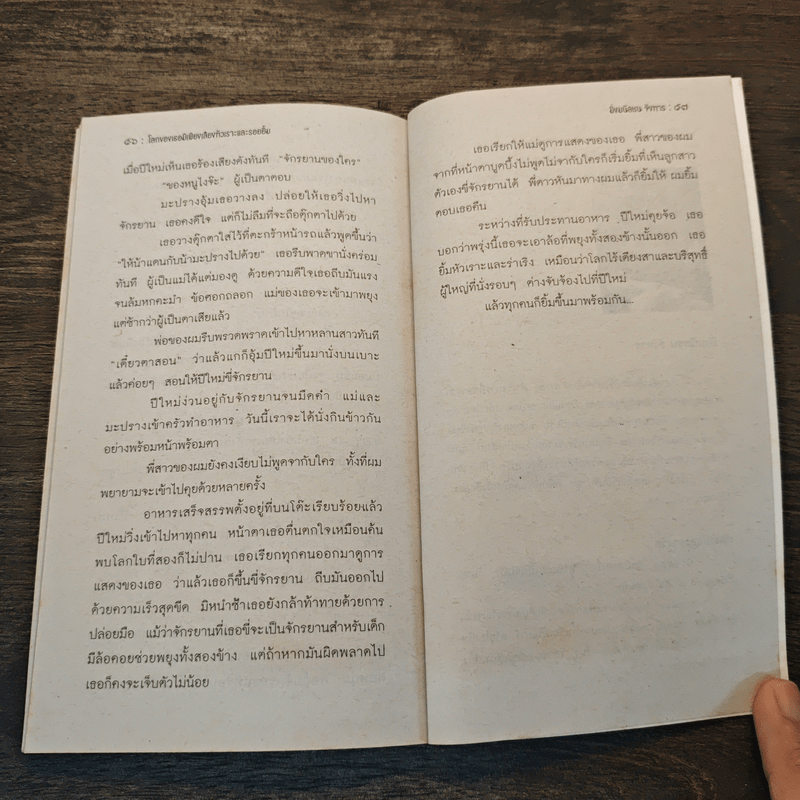 ๕๖ : โลกของเธอมีเพียงเสียงหัวเราะและรอยยิ้ม
เมื่อปีใหม่เห็นเธอร้องเสียงดังทันที “จักรยานของใคร”
“ของหนูไงจ๊ะ” ผู้เป็นตาตอบ
มะปรางอุ้มเธอวางลง ปล่อยให้เธอวิ่งไปหา
จักรยาน เธอคงดีใจ แต่ก็ไม่ลืมที่จะถือตุ๊กตาไปด้วย
เธอวางตุ๊กตาใส่ไว้ที่ตะกร้าหน้ารถแล้วพูดขึ้นว่า
“ให้น้าแดนกับน้ามะปรางไปด้วย” เธอรีบพาดขานั่งคร่อม
ทันที ผู้เป็นแม่ได้แต่มองดู ด้วยความดีใจเธอถีบมันแรง
จนล้มหกคะมำ ข้อศอกถลอก แม่ของเธอจะเข้ามาพยุง
แต่ช้ากว่าผู้เป็นตาเสียแล้ว
พ่อของผมรีบพรวดพราดเข้าไปหาหลานสาวทันที
“เดี๋ยวตาสอน” ว่าแล้วแกก็อุ้มปีใหม่ขึ้นมานั่งบนเบาะ
แล้วค่อยๆ สอนให้ปีใหม่ขี่จักรยาน
ปีใหม่ง่วนอยู่กับจักรยานจนมืดค่ำ แม่และ
มะปรางเข้าครัวทำอาหาร วันนี้เราจะได้นั่งกินข้าวกัน
อย่างพร้อมหน้าพร้อมตา
พี่สาวของผมยังคงเงียบไม่พูดจากับใคร ทั้งที่ผม
พยายามจะเข้าไปคุยด้วยหลายครั้ง
อาหารเสร็จสรรพตั้งอยู่ที่บนโต๊ะเรียบร้อยแล้ว
ปีใหม่วิ่งเข้าไปหาทุกคน หน้าตาเธอตื่นตกใจเหมือนค้น
พบโลกใบที่สองก็ไม่ปาน เธอเรียกทุกคนออกมาดูการ
แสดงของเธอ ว่าแล้วเธอก็ขึ้นขี่จักรยาน ถีบมันออกไป
ด้วยความเร็วสุดขีด มิหนำซ้ำเธอยังกล้าท้าทายด้วยการ
ปล่อยมือ แม้ว่าจักรยานที่เธอขี่จะเป็นจักรยานสำหรับเด็ก
มีล้อคอยช่วยพยุงทั้งสองข้าง แต่ถ้าหากมันผิดพลาดไป
เธอก็คงจะเจ็บตัวไม่น้อย
จิงหาร : ๕๗
เธอเรียกให้แม่ดูการแสดงของเธอ พี่สาวของผม
จากที่หน้าตาบูดบึ้งไม่พูดไม่จากับใครก็เริ่มยิ้มที่เห็นลูกสาว
ตัวเองขี่จักรยานได้ พี่ดาวหันมาทางผมแล้วก็ยิ้มให้ ผมยิ้ม
ตอบเธอคืน
ระหว่างที่รับประทานอาหาร ปีใหม่คุยจ้อ เธอ
บอกว่าพรุ่งนี้เธอจะเอาล้อที่พยุงทั้งสองข้างนั้นออก เธอ
ยิ้มหัวเราะและร่าเริง เหมือนว่าโลกไร้เดียงสาและบริสุทธิ์
ผู้ใหญ่ที่นั่งรอบๆ ต่างจับจ้องไปที่ปีใหม่
แล้วทุกคนก็ยิ้มขึ้นมาพร้อมกัน...